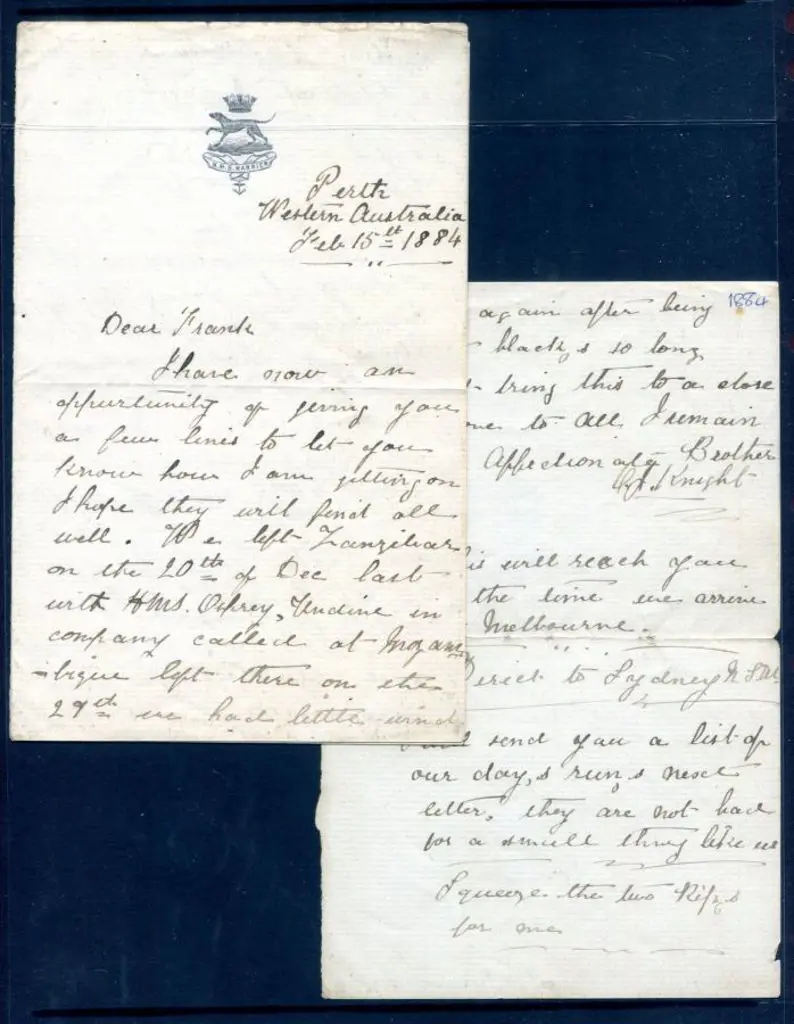 H.M.S. HARRIER
Perth
Western Australia
Feb 15th 1884
Dear Frank
I have now an
oppurtunity of giving you
a few lines to let you
know how I am getting on
I hope they will find all
well. We left Zanzibar
on the 20th of Dec last
with HMS. Osprey, Undine in
company called at Mozam
-bique left there on the
29th we had little wind
1884
again after being
black,s so long
bring this to a close
to all I remain
Affectionate Brother
Knight
is will reach you
the time we arrive
Melbourne.
Direct to Sydney N.S.W.
send you a list of
our day,s run,s next
letter, they are not bad
for a small thing like us
Squeeze the two
for me